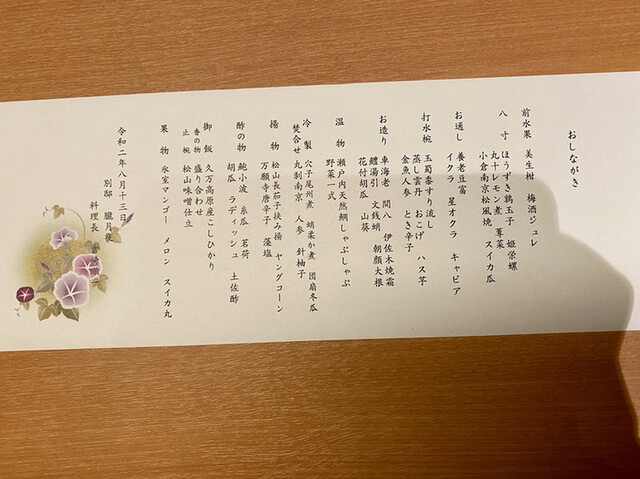 おしながき
前水果 美生柑 梅酒ジュレ
八寸 ほうずき鶉玉子 姫栄螺
九十レモン煮 蓴菜 スイカ瓜
小倉南京松風焼
お通し 養老豆富 星オクラ キャビア
イクラ
打水椀 玉蜀黍すり流し
蒸し雲丹 おこげ ハス芋
金魚人参 とき辛子
お造り 車海老 間八 伊佐木焼霜
鱧湯引 文銭蛸 朝顔大根
花付胡瓜 山葵
温物 瀬戸内天然鯛しゃぶしゃぶ
野菜一式
冷製 穴子尾州煮 蛸柔か煮 団扇冬瓜
焚合せ 丸制南京 人参 針柚子
揚物 松山長茄子挟み揚 ヤングコーン
万願寺唐辛子 藻塩
酢の物 鮑小波 糸瓜 茗荷
胡瓜 ラディッシュ 土佐酢
御飯 久万高原産こしひかり
香の物 盛り合わせ
止椀 松山味噌仕立
果物 氷室マンゴー メロン スイカ丸
令和二年八月十三日
別邸 朧月夜
料理長